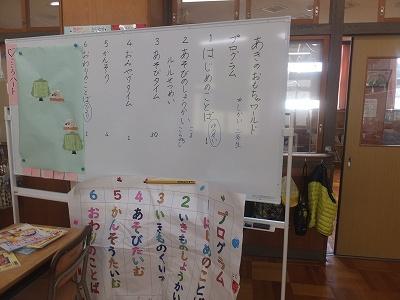 あきのおもちゃワールド
プログラム
1 はじめのことば
2 あそびのしょうかい
ルールせつめい
3 あそびタイム 30
4 おみやげタイム
5 かんそう
6 おわりのことば
プログラム
1 はじめのことば
2 いきものしょうかい
3 いきものくいず
4 あそびたいむ
5 かんそうたいむ
6 おわりのことば